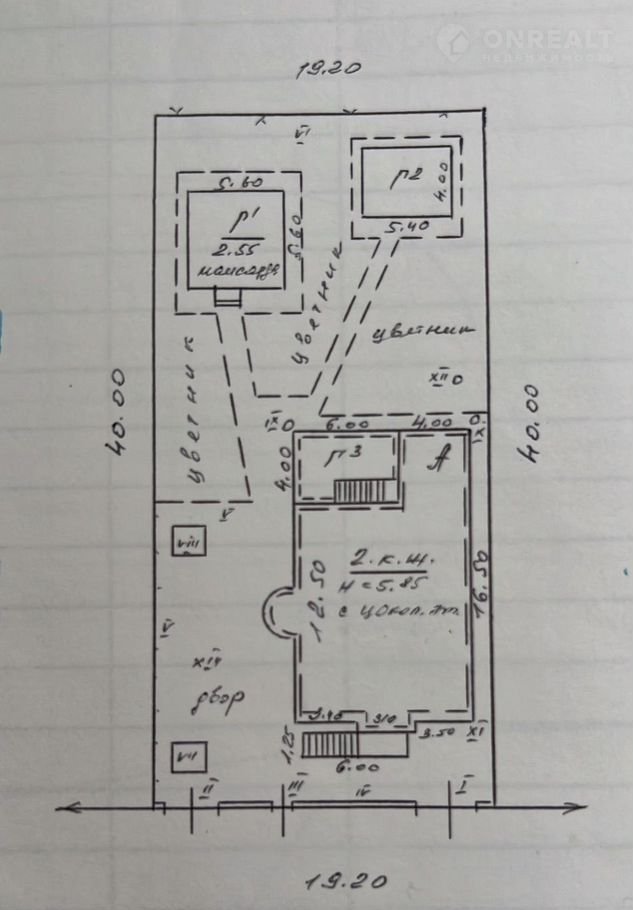 ONREALT
НЕДВИЖИМОСТЬ
19.20
VI
г2
4.00
5.40
5.60
г1
2.55
мансарда
5.60
цветник
цветник
цветник
40.00
40.00
XII
IX
6.00
4.00
IX
г3
А
4.00
V
VIII
2.К.Ж.
H=5.85
с цокол.эт.
12.50
16.50
V
XIV
двор
3.40
310
3.50
XI
1.25
6.00
VII
II
III
IV
I
19.20